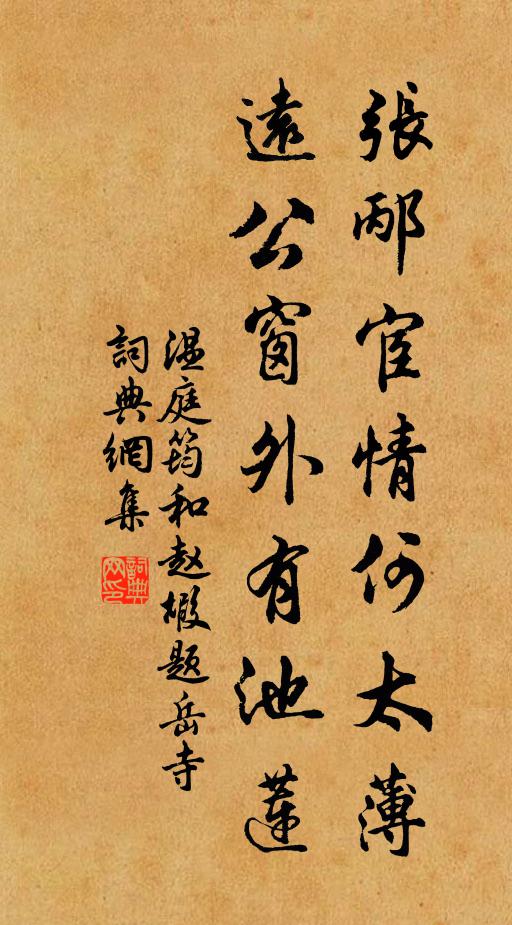 張邴宦情何太薄
遠公窗外有池蓮
温庭筠和赵嘏题岳寺
詞典網集
詞典网印